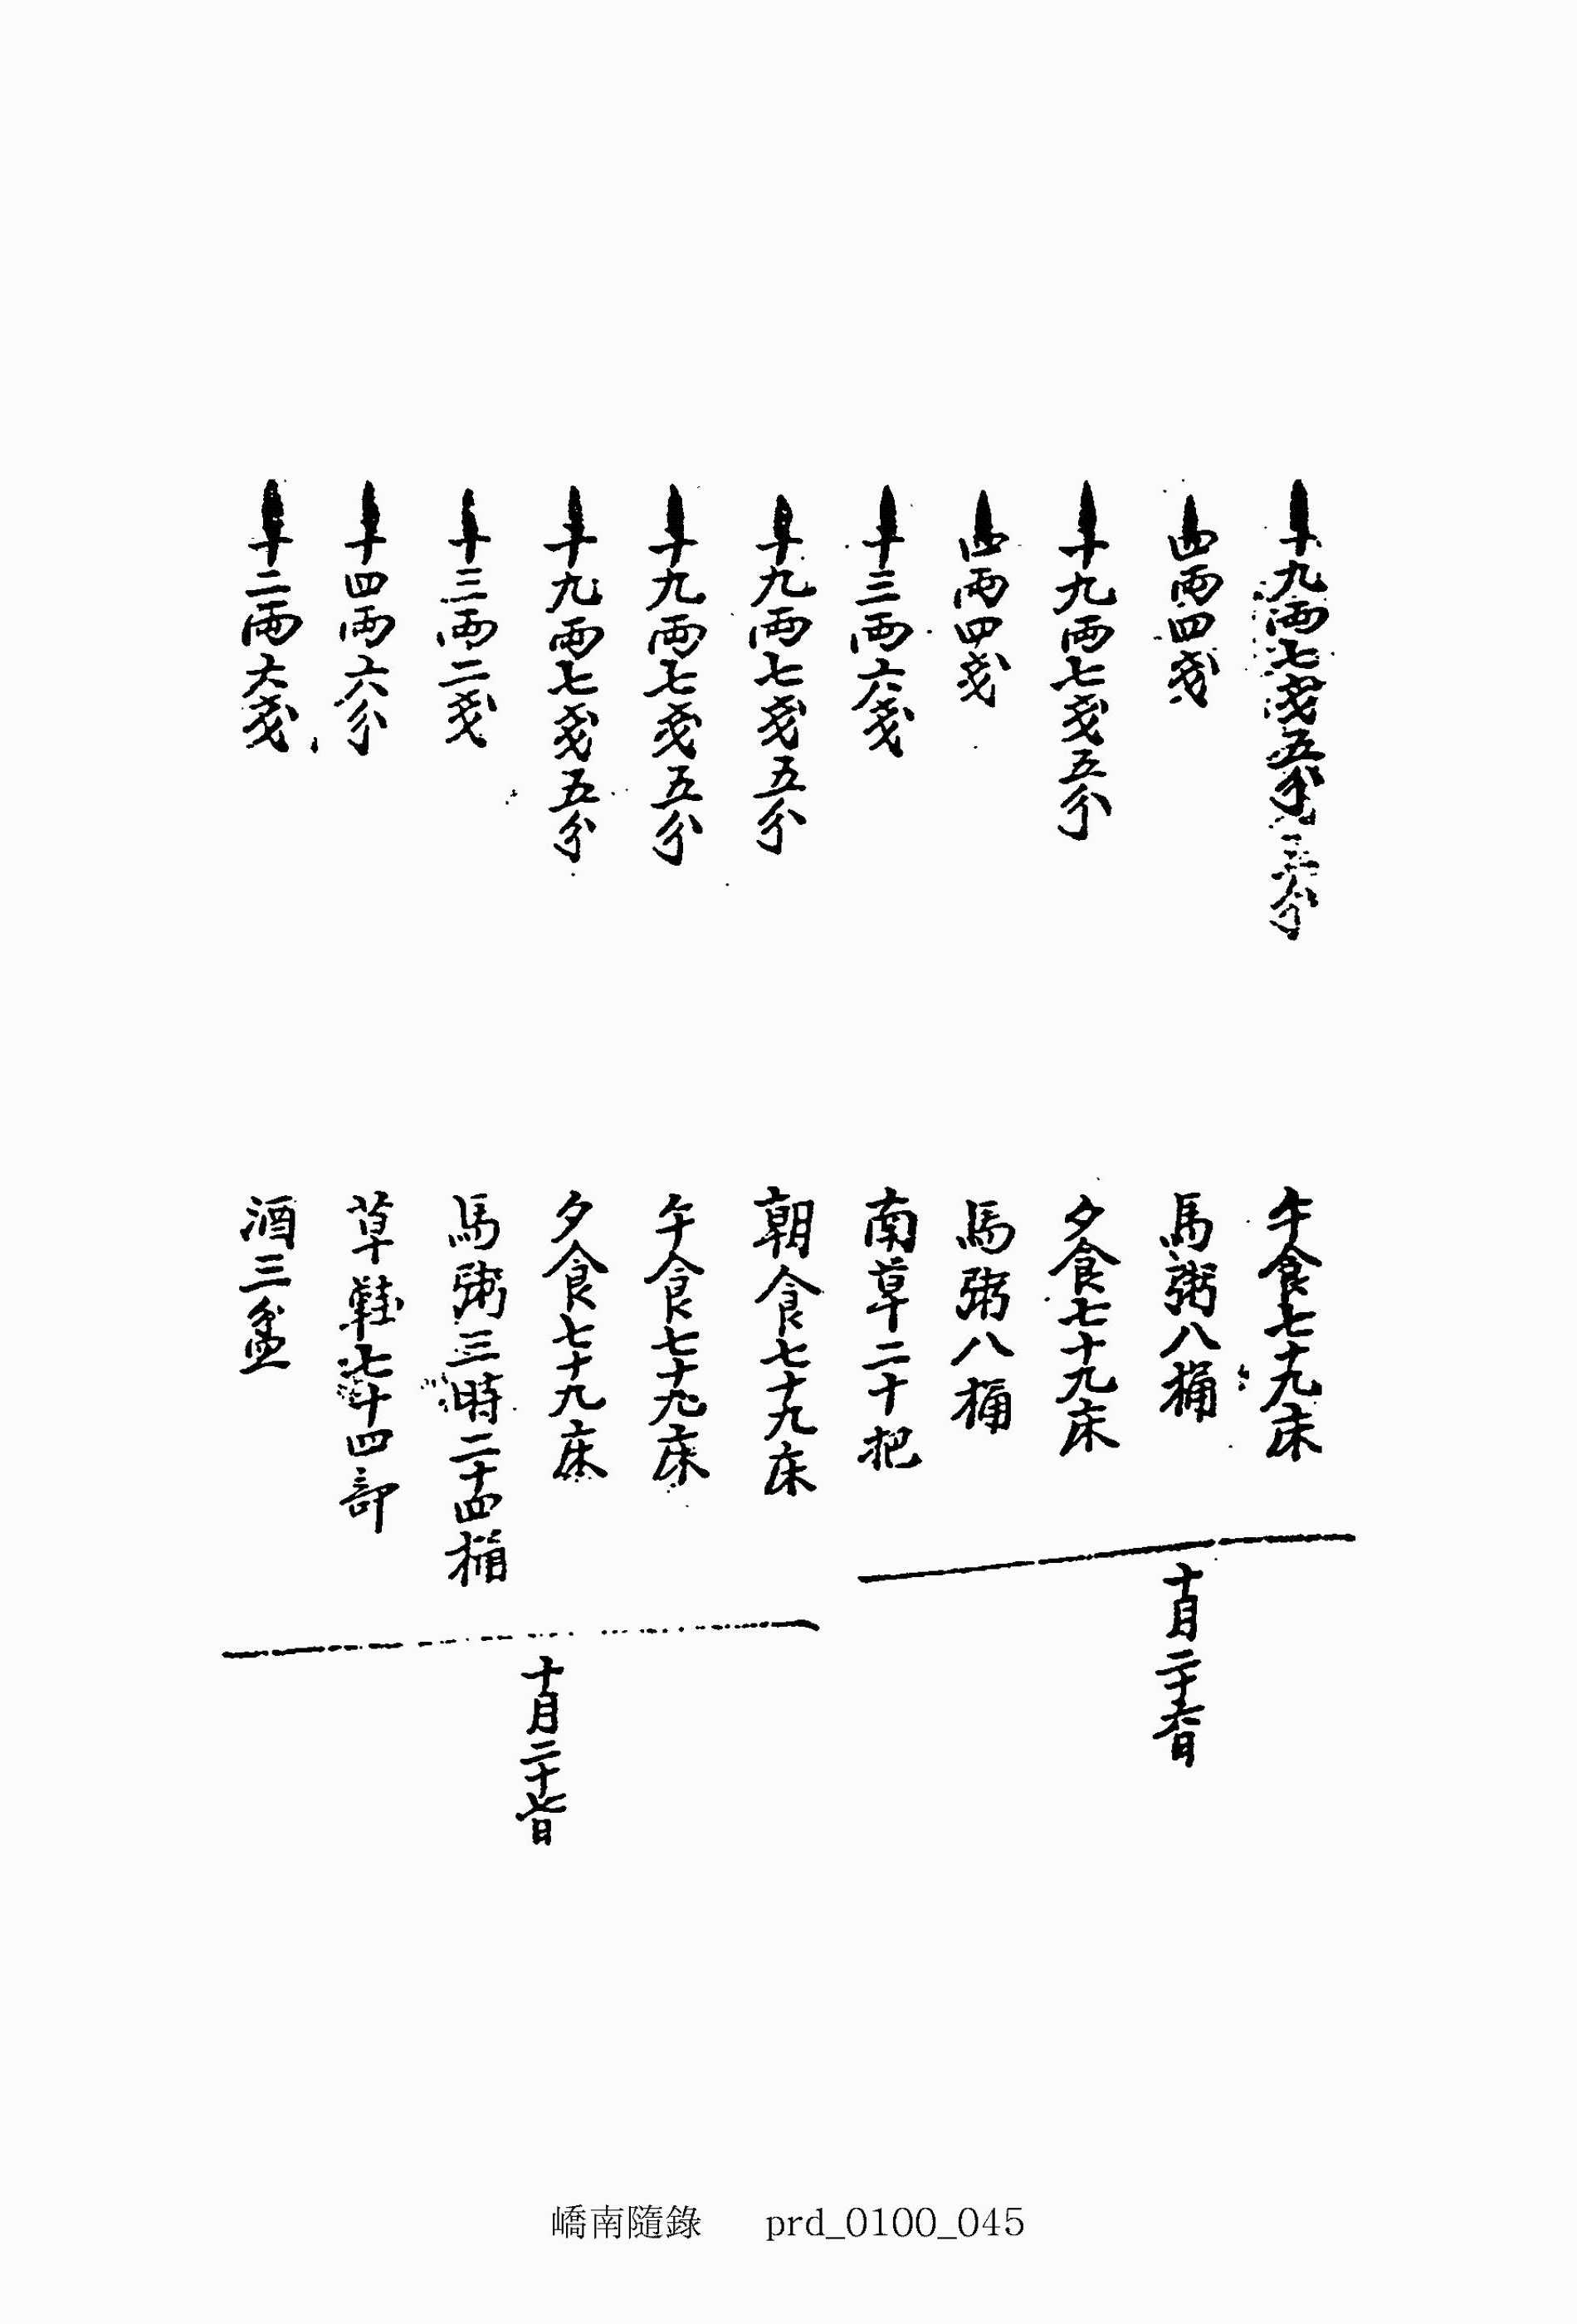 十九兩七戔五分 午食七十九床
四兩四戔 馬粥八桶
十九兩七戔五分 夕食七十九床
四兩四戔 馬粥八桶
十三兩六戔 南草二十把
十月二十六日
十九兩七戔五分 朝食七十九床
十九兩七戔五分 午食七十九床
十九兩七戔五分 夕食七十九床
十三兩二戔 馬粥三時二十四桶
十四兩六分 草鞋七十四部
十二兩六戔 酒三盆
十月二十七日
嶠南隨錄 prd_0100_045